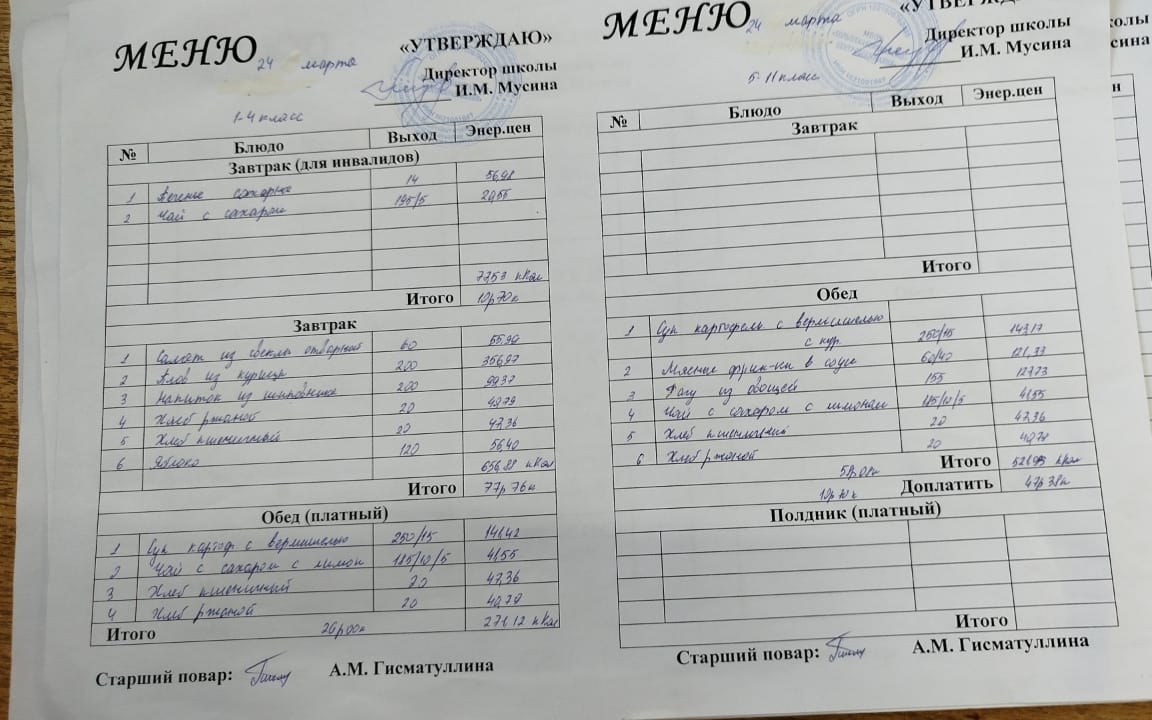 МЕНЮ
24 марта
«УТВЕРЖДАЮ»
Директор школы
И.М. Мусина
1-4 класс
№ Блюдо Выход Энер.цен
Завтрак (для инвалидов)
1 Печенье сахарное 14 56,98
2 Чай с сахаром 195/5 20,55
77,53 кКал
Итого 10р 70к
Завтрак
1 Салат из свеклы отварной 60 55,90
2 Плов из курицы 200 356,97
3 Напиток из шиповника 200 99,37
4 Хлеб ржаной 20 40,79
5 Хлеб пшеничный 20 47,36
6 Яблоко 120 56,40
656,88 кКал
Итого 77р 76к
Обед (платный)
1 Суп картоф с вермишелью 250/15 141,42
2 Чай с сахаром с лимон 185/10/5 41,55
3 Хлеб пшеничный 20 47,36
4 Хлеб ржаной 20 40,79
Итого 26р00к 271,12 кКал
Старший повар: А.М. Гисматуллина
МЕНЮ
24 марта
Директор школы
И.М. Мусина
5-11 класс
№ Блюдо Выход Энер.цен
Завтрак
Итого
Обед
1 Суп картофель с вермишелью
с кур. 250/15 143,17
2 Мясные фрик-ки в соусе 60/40 121,33
3 Рагу из овощей 155 127,73
4 Чай с сахаром с лимоном 185/10/5 41,55
5 Хлеб пшеничный 20 47,36
6 Хлеб ржаной 20 40,79
Итого
10р 70к Доплатить 47р 38к
Полдник (платный)
Итого
Старший повар: А.М. Гисматуллина